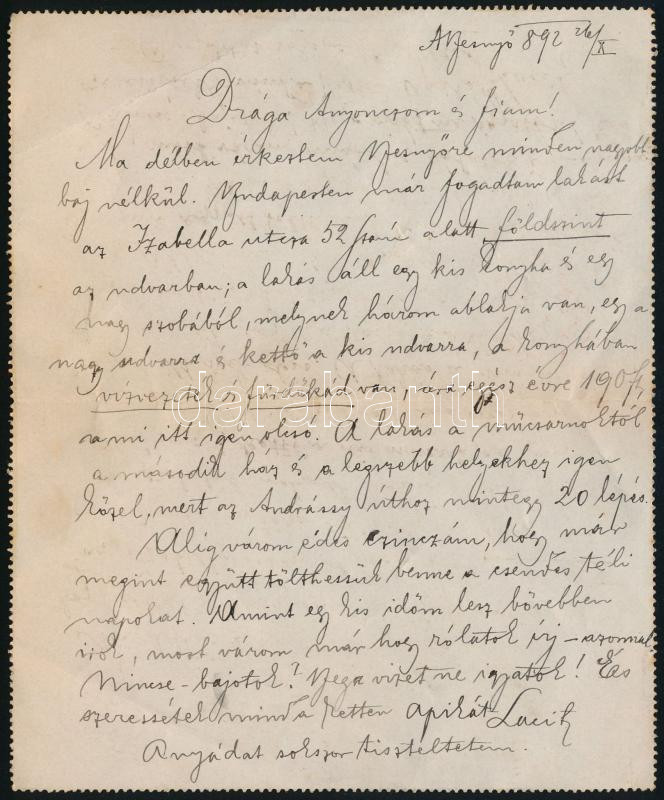 ABesnyő 892 26/X
Drága Anyoncsom és fiam!
Ma délben érkeztem Besnyőre minden nagyobb
baj nélkül. Budapesten már fogadtam lakást
az Izabella utcza 52 szám alatt földszint
az udvarban; a lakás áll egy kis konyha és egy
nagy szobából, melynek három ablakja van, egy a
nagy udvarra és kettő a kis udvarra, a konyhában
vízvezeték és fürdőkád van, ára egész évre 190 ft,
ami itt igen olcsó. A lakás a műcsarnoktól
a második ház és a legszebb helyekhez igen
közel, mert az Andrássy úthoz mintegy 20 lépés.
Alig várom édes czinczám, hogy már
megint együtt tölthessük benne a csendes téli
napokat. Amint egy kis időm lesz bővebben
irok, most várom már hogy rólatok irj - azonnal
Nincse - bajotok? Nega vizet ne igyatok! És
szeressétek mind a ketten apikát Lacit
Anyádat sokszor tiszteltetem.
darabanth